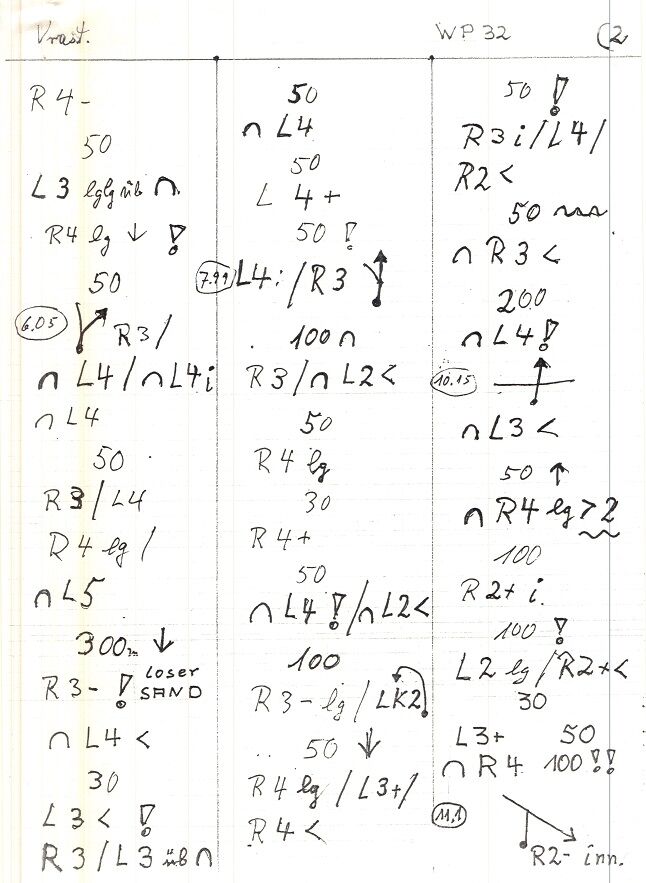 Vrast. WP 32 (2
R 4 -
50
L 3 lglg üb ∩
R4 lg ↓ !
50
6.05 R 3 /
∩ L4 / ∩ L4 i
∩ L4
50
R 3 / L4
R 4 lg /
∩ L5
300m ↓
R 3 - ! loser
SAND
∩ L4 <
30
L 3 < !
R 3 / L 3 üb ∩
50
∩ L4
50
L 4 +
50 !
7.99 L4 i / R3
100 ∩
R 3 / ∩ L2 <
50
R 4 lg
30
R 4 +
50
∩ L4 ! / ∩ L2 <
100
R 3 - lg / LK2
50 ↓
R 4 lg / L3 + /
R 4 <
50 !
R 3 i / L4 /
R2 <
50
∩ R 3 <
200
∩ L4 !
10.15
∩ L3 <
50 ↑
∩ R4 lg > 2
100
R 2 + i.
100 !
L 2 lg / R2 + <
30
L3 + 50
∩ R 4 100 !!
11,1
R2 - inn.